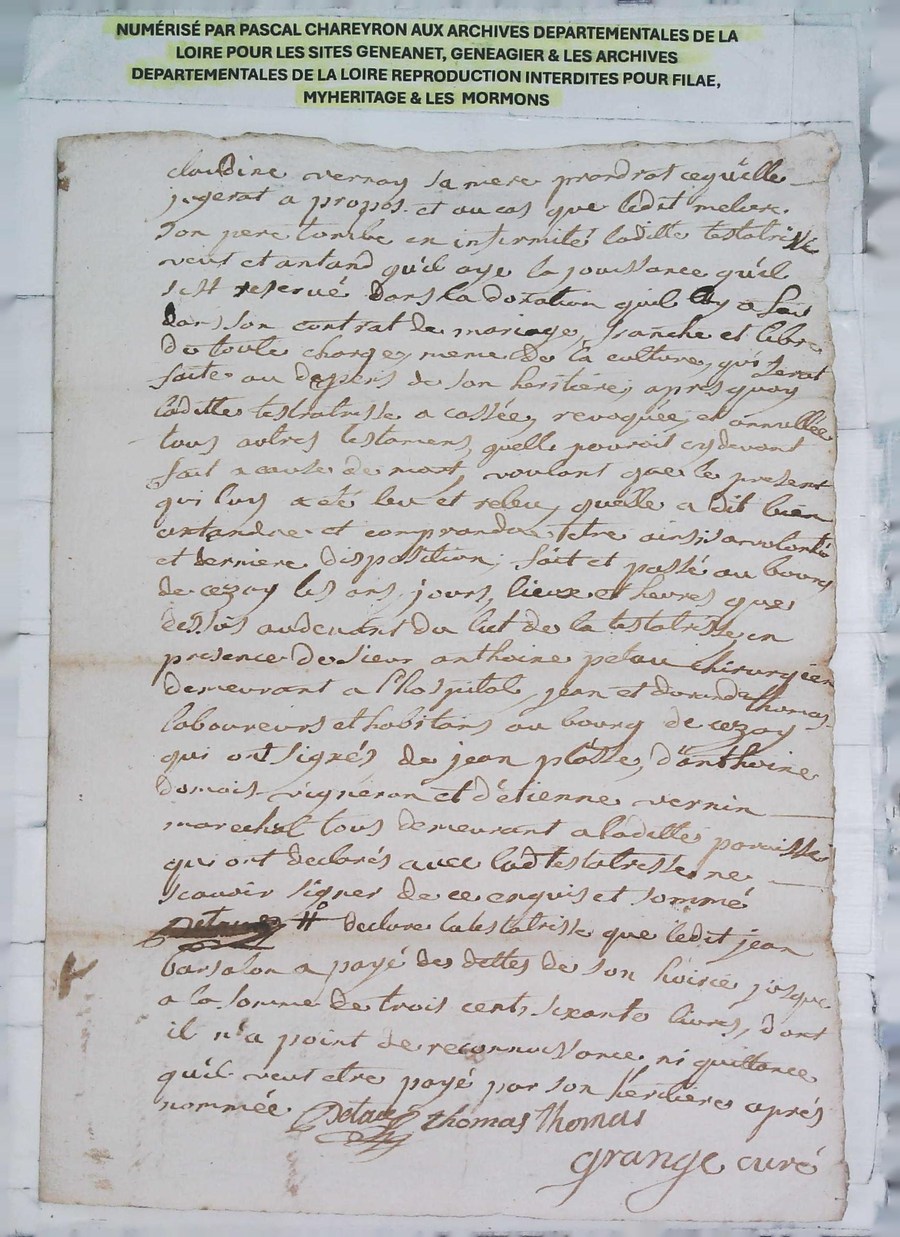 NUMÉRISÉ PAR PASCAL CHAREYRON AUX ARCHIVES DEPARTEMENTALES DE LA
LOIRE POUR LES SITES GENEANET, GENEAGIER & LES ARCHIVES
DEPARTEMENTALES DE LA LOIRE REPRODUCTION INTERDITES POUR FILAE,
MYHERITAGE & LES MORMONS
claudine vernay sa mere prandrat cequ'elle
jugerat a propos. et au cas que ledit
son pere tombe en infirmité laditte testatrisse
veut et antand qu'il aye la jouissance qu'il
s'est reservé dans la donation quil luy a fait
dans son contrat de mariage, franche et libre
de toute charge, meme de la culture, qui serat
faite au depens de son heritiere, apres quoy
laditte testratrisse a cassée, revoquée, et annullée
tous autres testamens, quelle pouroit cydevant
fait a cause de mort, voulant que le present
qui luy a été leu et releu, quelle a dit bien
antandre et comprandre etre ainsi sa volonté
et derniere disposition; fait et passé au bourg
de cezay les ans, jours, lieux et heures que
dessus audevant du lict de la testatrisse, en
presence de sieur anthoine petau chirurgien
demeurant a l'hospital, jean et durand thomas
laboureurs et habitans au bourg de cezay
qui ont signés de jean plasse, d'anthoine
damais vigneron et d'étienne vernin
marechal tous demeurant a laditte paroisse
qui ont declarés avec lad testatrisse ne
scavoir signer de ce enquis et sommé
declare la testatrisse que ledit jean
barsalon a payé des dettes de son hoirie jusque
a la somme de trois cents sixante livres, dont
il n'a point de reconnoissance ni quittance
qu'il veut etre payé par son herditere aprés
nommée Petau thomas Thomas
grange curé